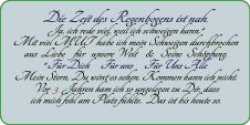 Die Zeit des Regenbogens ist nah.
Ja, ich rede viel, weil ich schweigen kann,
Mit viel MUT habe ich mein Schweigen durchbrochen
aus Liebe für unsere Welt & Seine Schöpfung.
*Für Dich Für uns Für Uns Alle
Mein Stern, Du wirst es sehen. Kommen kann ich nicht.
Vor 3 Jahren kam ich so ungelegen zu Dir, dass
ich mich fehl am Platz fühlte. Das ist bis heute so.